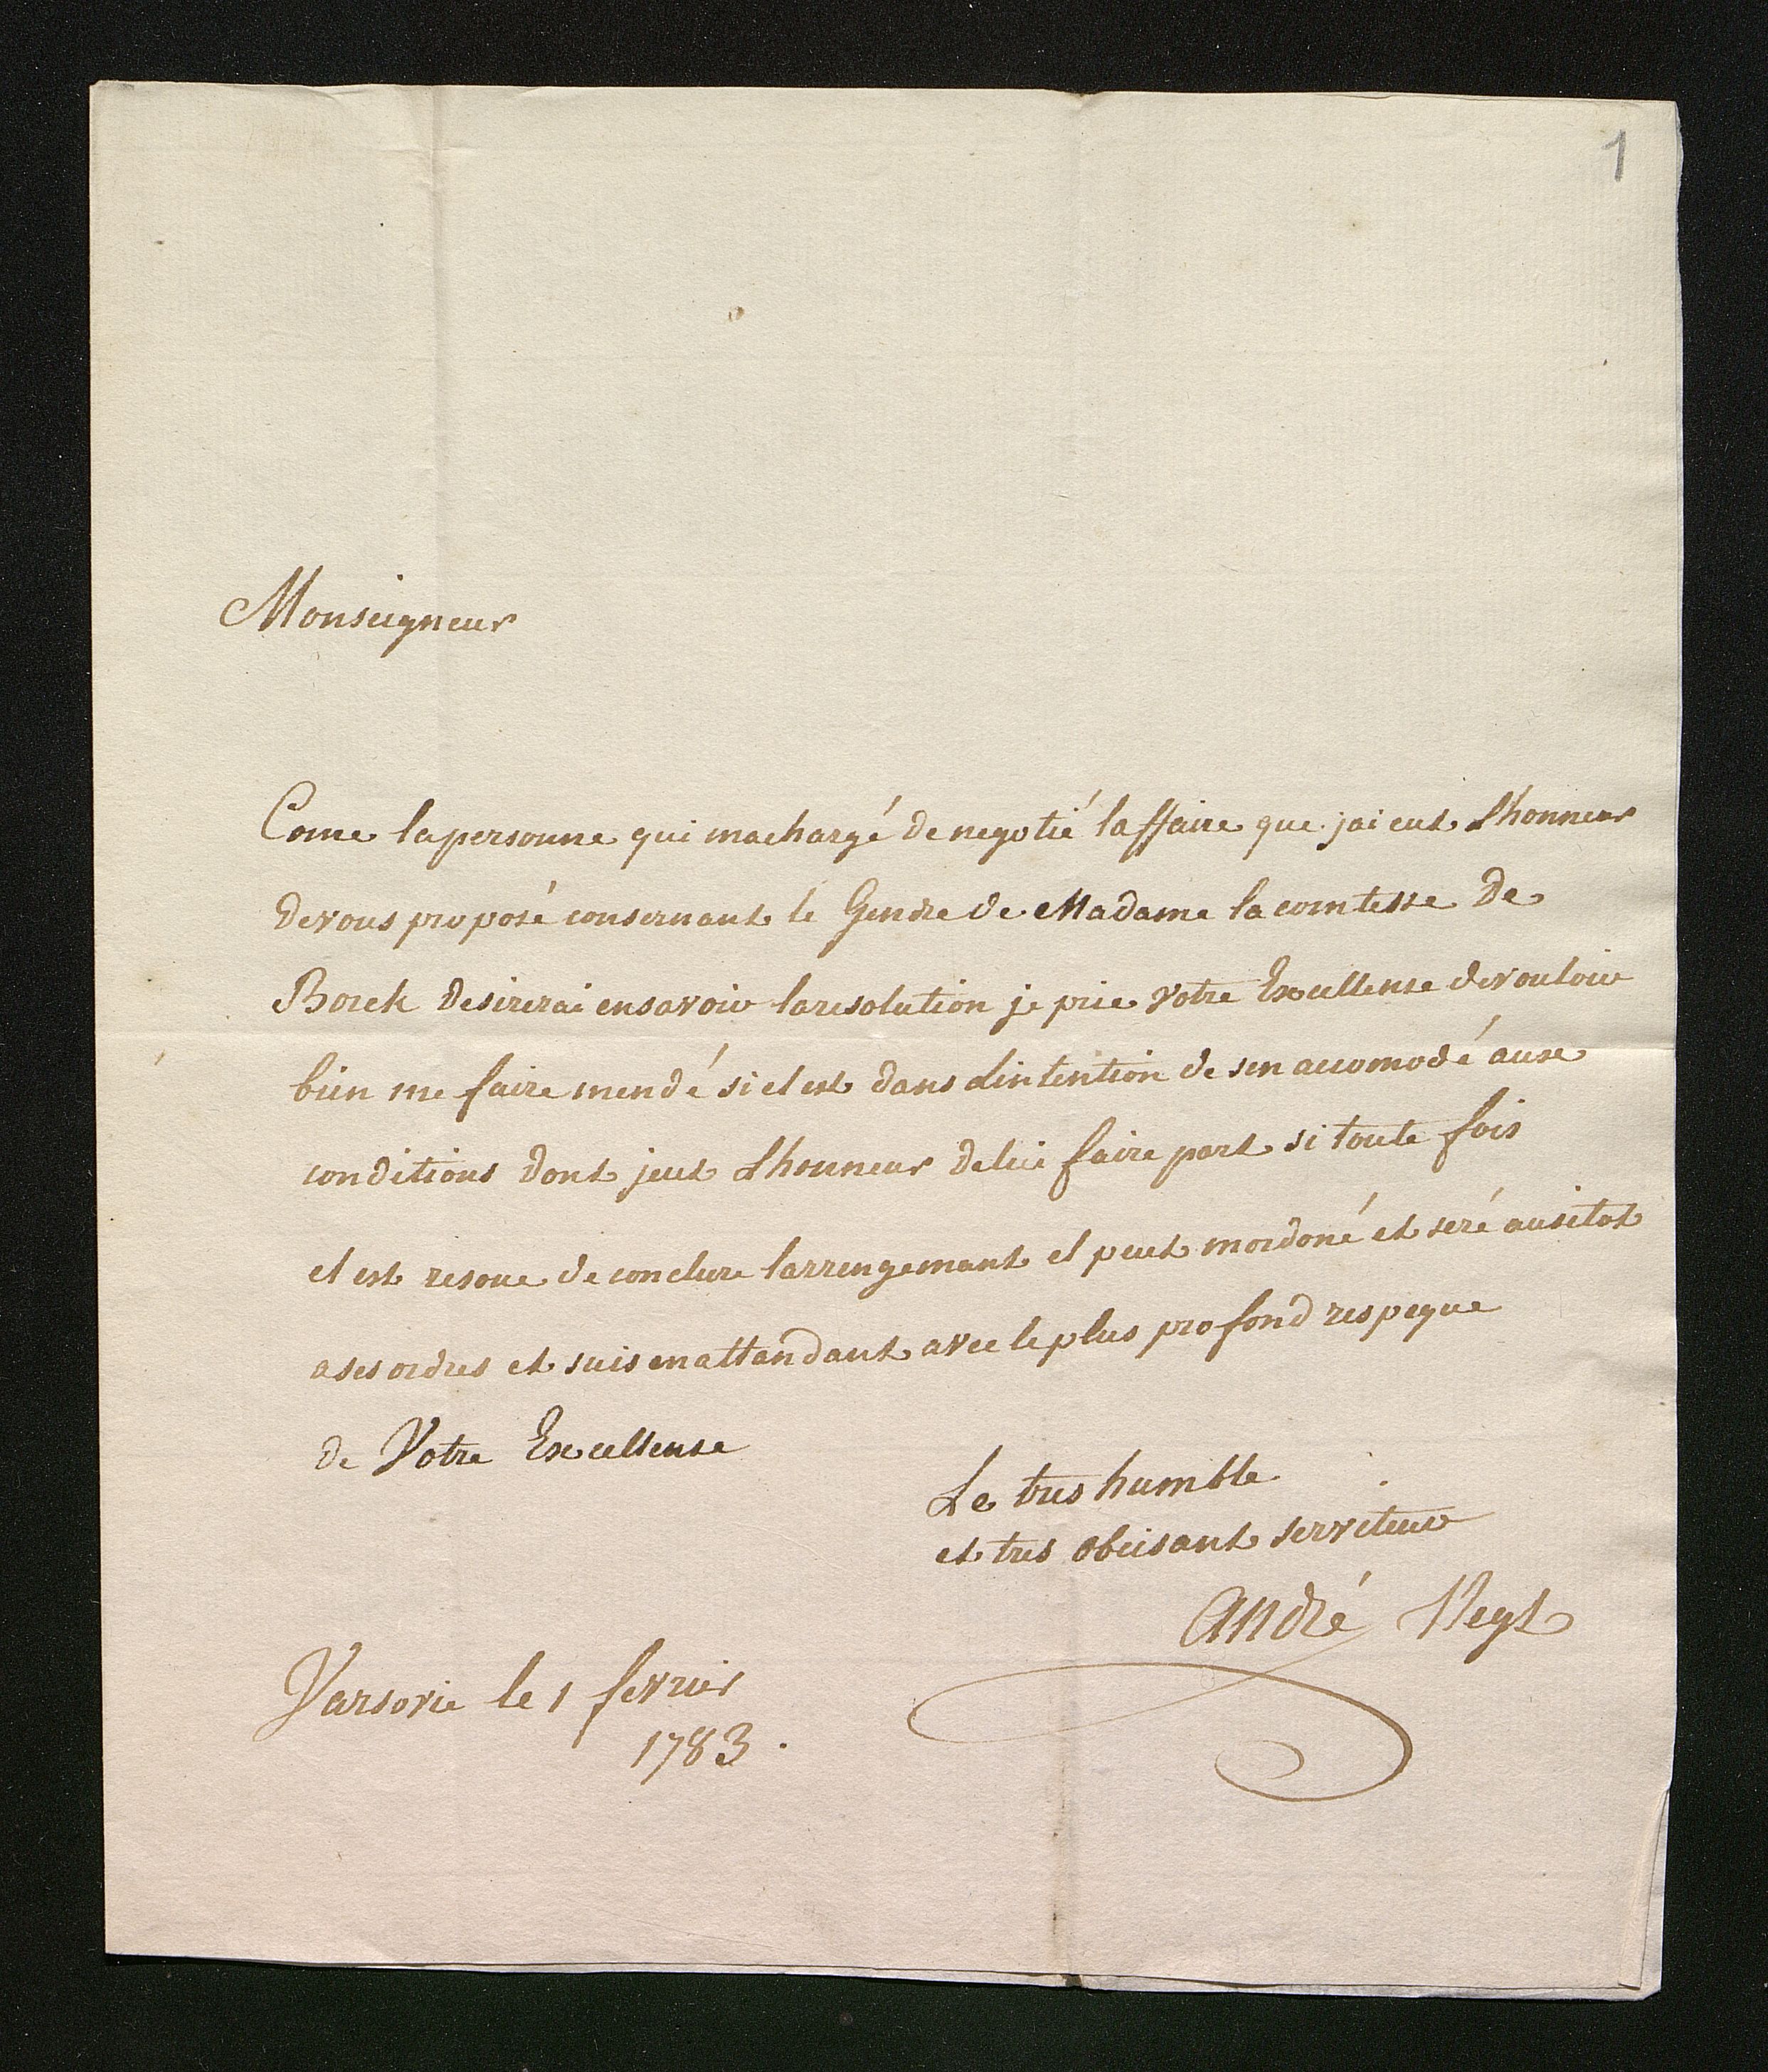 1
Monseigneur
Come la personne qui ma chargé de negotié laffaire que jai eut Lhonneur
de vous proposé consernant le Gendre de Madame la comtesse de
Borck desirerai en savoir la resolution je prie Votre Excellense de vouloir
bien me faire mendé si el est dans Lintention de sen accomodé aux
conditions dont jeut Lhonneur de lui faire part si toute fois
el est resoue de conclure larrengemant el peut mordoné et seré ausitot
a ses ordres et suis en attandant avec le plus profond respeque
de Votre Excellense
Le tres humble
et tres obeisant serviteur
André
Varsovie le 1 fevrier
1783.